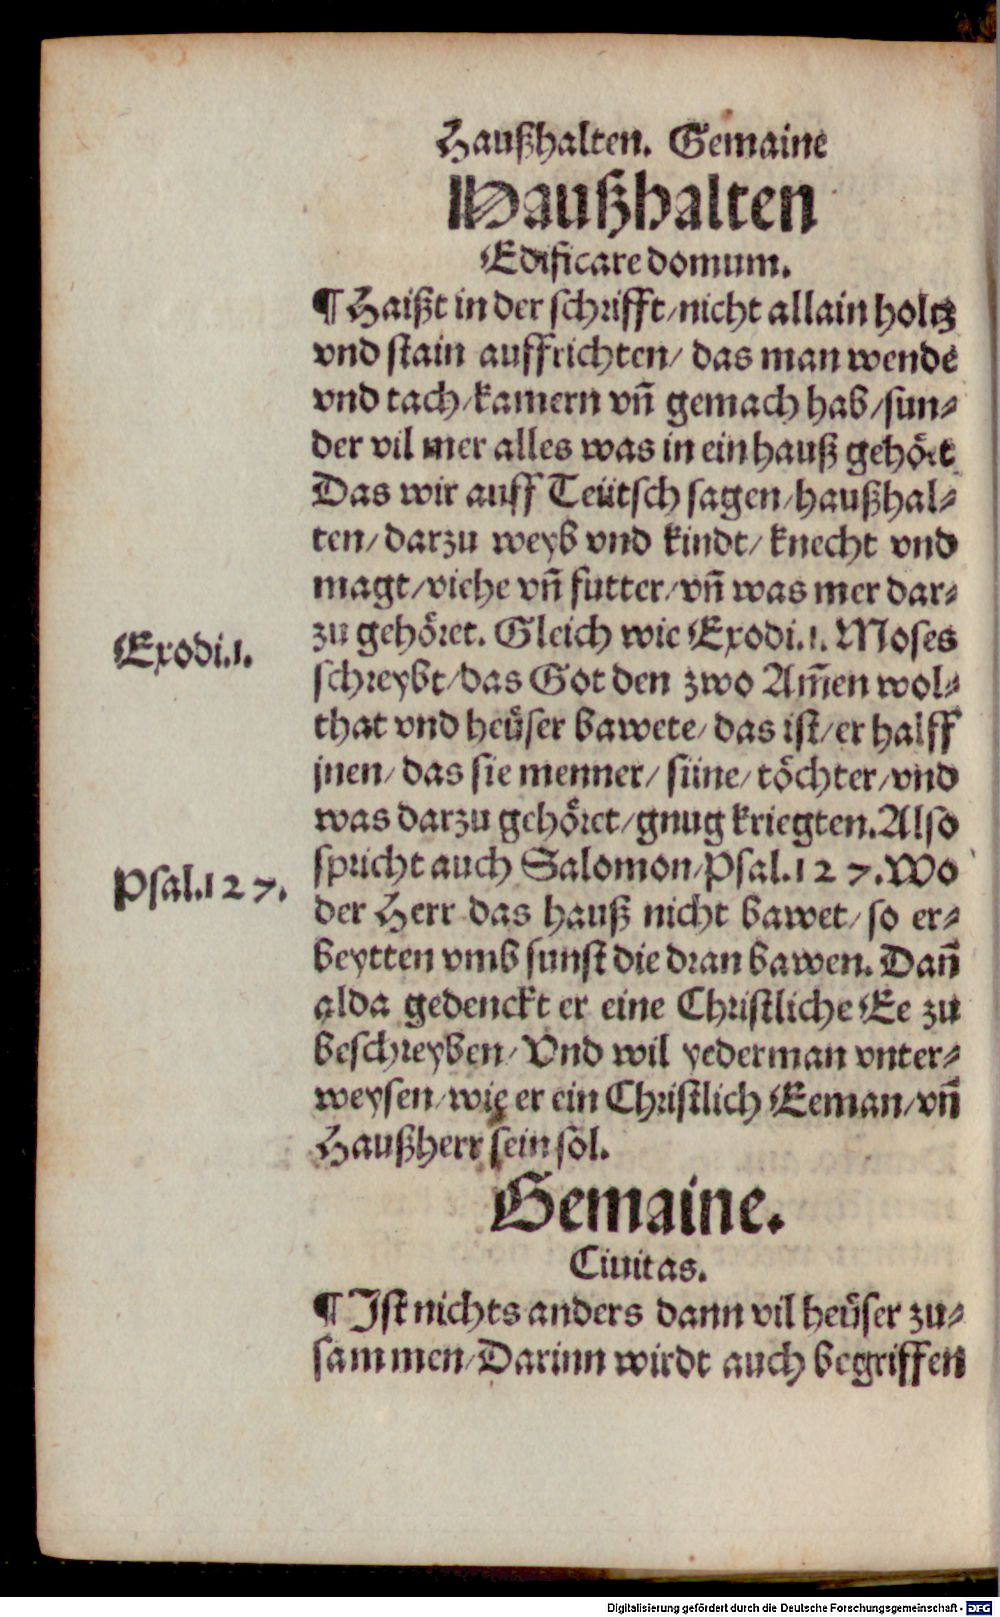 Haußhalten. Gemaine
Haußhalten
Edificare domum.
¶ Haißt in der schrifft/nicht allain holtz
vnd stain auffrichten/ das man wende
vnd tach/kamern vñ gemach hab/sun⸗
der vil mer alles was in ein hauß gehört
Das wir auff Teütsch sagen/haußhal⸗
ten/darzu weyb vnd kindt/ knecht vnd
magt/viehe vñ futter/vñ was mer dar⸗
Exodi.1.
zu gehöret. Gleich wie Exodi.1. Moses
schreybt/das Got den zwo Am̃en wol⸗
that vnd heüser bawete/das ist/er halff
jnen/das sie menner/ süne/töchter/vnd
was darzu gehöret/gnug kriegten.Also
Psal.127.
spricht auch Salomon/Psal.127.Wo
der Herr das hauß nicht bawet/so er⸗
beytten vmb sunst die dran bawen. Dañ
alda gedenckt er eine Christliche Ee zu
beschreyben/Vnd wil yederman vnter⸗
weysen/wie er ein Christlich Eeman/vñ
Haußherr sein sol.
Gemaine.
Ciuitas.
¶ Ist nichts anders dann vil heüser zu⸗
sammen/Darinn wirdt auch begriffen
Digitalisierung gefördert durch die Deutsche Forschungsgemeinschaft - DFG